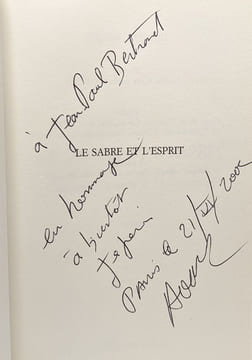 à Jean Paul Bertrand
LE SABRE ET L'ESPRIT
en hommage
à bientôt
Paris le 21/